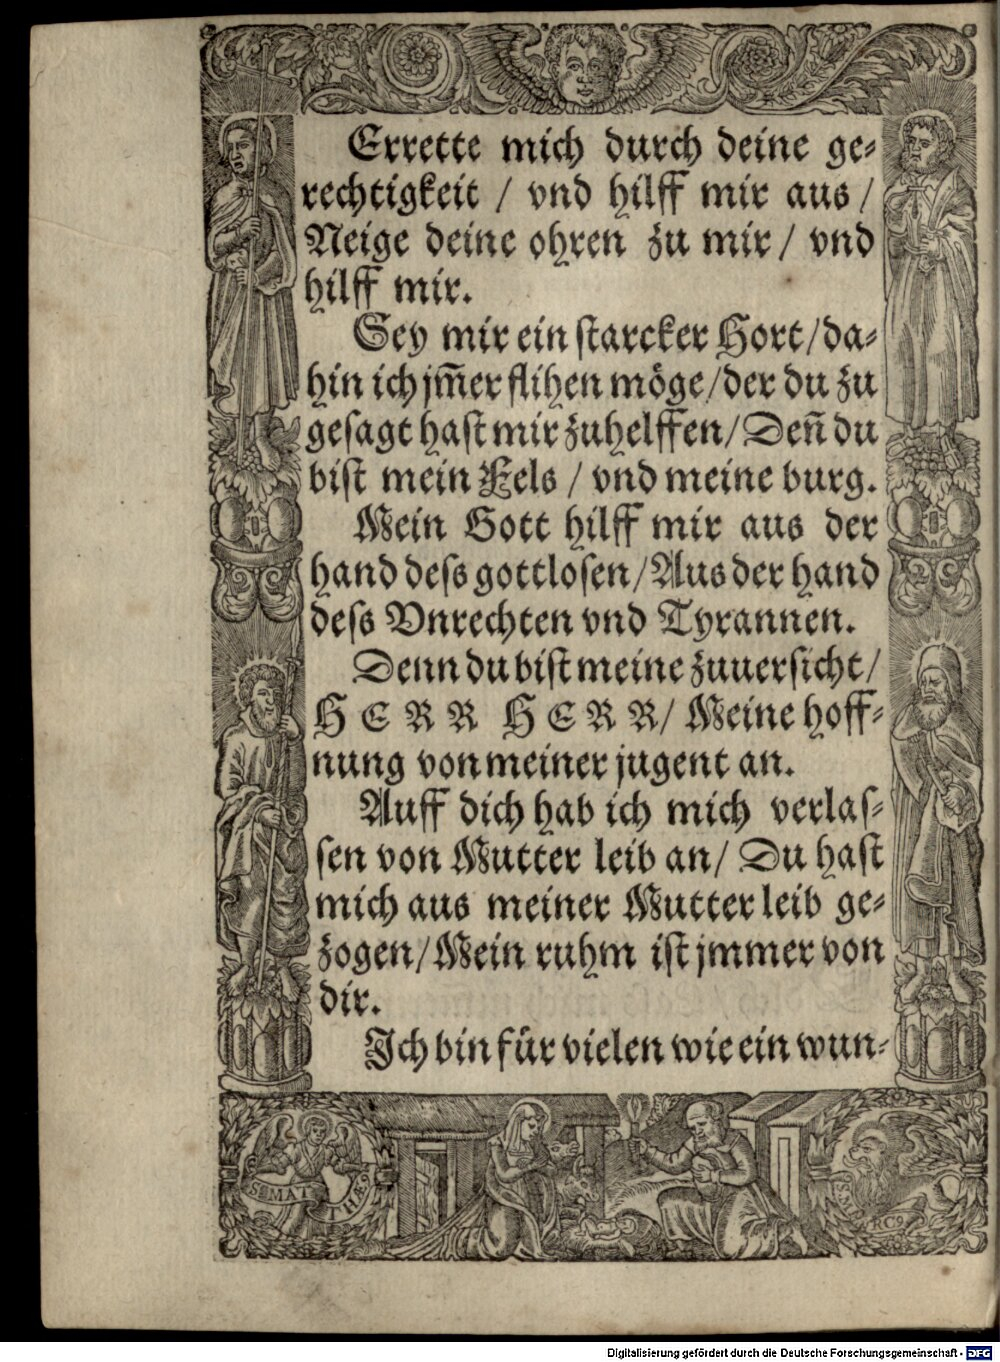 Errette mich durch deine ge⸗
rechtigkeit / vnd hilff mir aus /
Neige deine ohren zu mir / vnd
hilff mir.
Sey mir ein starcker Hort/da⸗
hin ich jm̃er flihen möge/der du zu
gesagt hast mir zuhelffen/Deñ du
bist mein Fels / vnd meine burg.
Mein Gott hilff mir aus der
hand dess gottlosen/Aus der hand
dess Vnrechten vnd Tyrannen.
Denn du bist meine zuuersicht/
H E R R H E R R/ Meine hoff⸗
nung von meiner jugent an.
Auff dich hab ich mich verlas⸗
sen von Mutter leib an/ Du hast
mich aus meiner Mutter leib ge⸗
zogen/Mein ruhm ist jmmer von
dir.
Ich bin für vielen wie ein wun⸗
S MAT THÆ9
S. M RC9
Digitalisierung gefördert durch die Deutsche Forschungsgemeinschaft - DFG